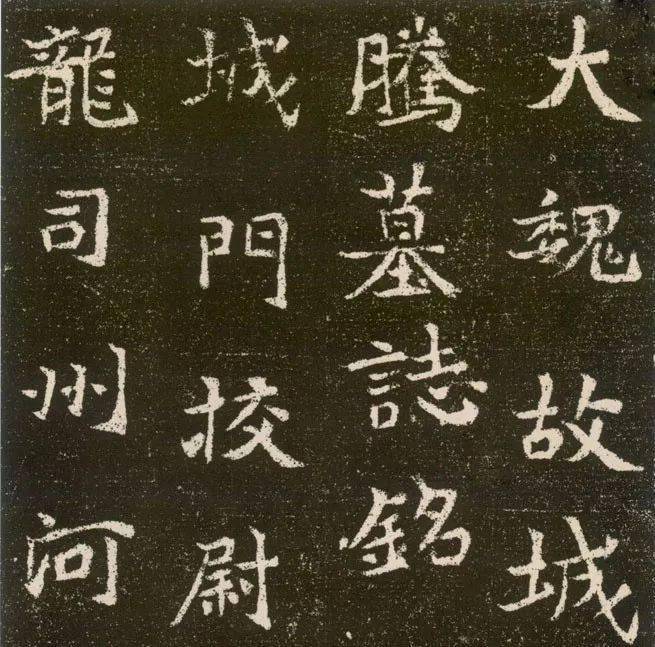 大魏故城
騰墓誌銘
城門挍尉
龍司州河